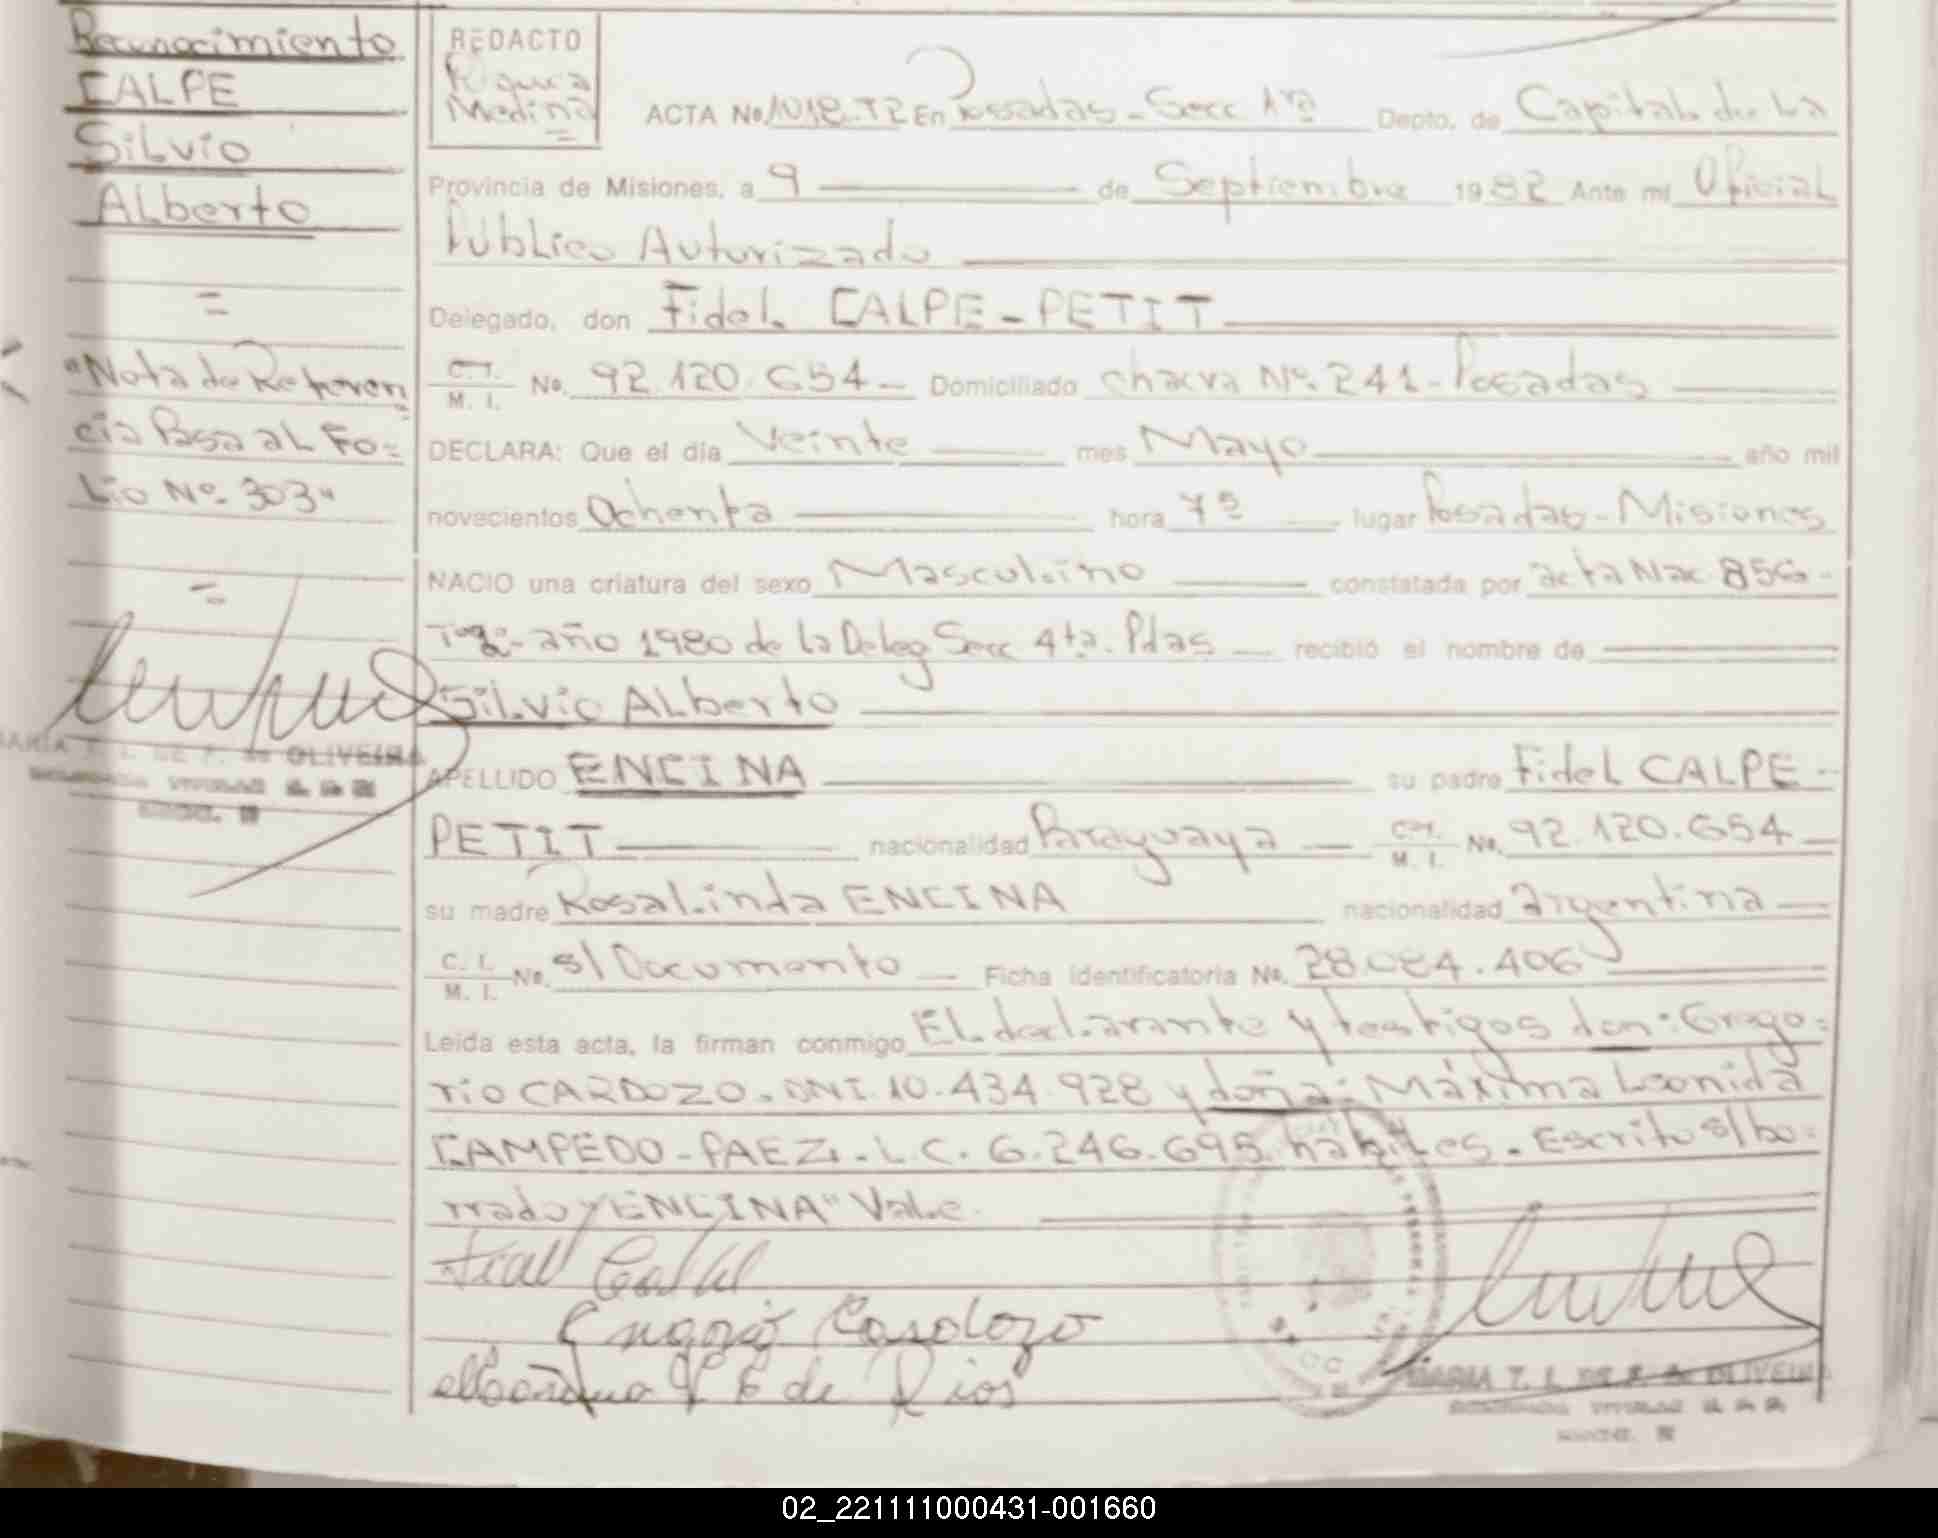 Reconocimiento
CALPE
Silvio
Alberto
=
"Nota de Referen=
cia Pasa al Fo=
lio Nº 303"
=
OLIVEIRA
REDACTO
Medina
=
ACTA No 1018-T2 En Posadas - Secc 1ra Depto. de Capital de La
Provincia de Misiones, a 9 de Septiembre 1982 Ante mi Oficial
Público Autorizado
Delegado, don Fidel CALPE - PETIT
C. I. M. I. No. 92.120.654 - Domiciliado chacra Nº 241 - Posadas
DECLARA: Que el día Veinte mes Mayo año mil
novecientos Ochenta hora 7ª lugar Posadas - Misiones
NACIO una criatura del sexo Masculino constatada por acta Nac. 856 -
Tº 2º - año 1980 de la Deleg Secc 4ta. Pdas recibió el nombre de
Silvio Alberto
APELLIDO ENCINA su padre Fidel CALPE -
PETIT nacionalidad Paraguaya C. I. M. I. No. 92.120.654
su madre Rosalinda ENCINA nacionalidad argentina
C. I. M. I. No. s/Documento Ficha identificatoria No. 28.084.406
Leida esta acta, la firman conmigo El declarante y testigos don: Grego=
rio CARDOZO - DNI. 10.434.928 y doña: Máxima Leonida
CAMPEDO - PAEZ - L.C. 6.246.695 hábiles. - Escrito s/bo=
rrado "ENCINA" Vale.
Cardozo
de Rios
MARIA T. L. DE F. de OLIVEIRA
02_221111000431-001660